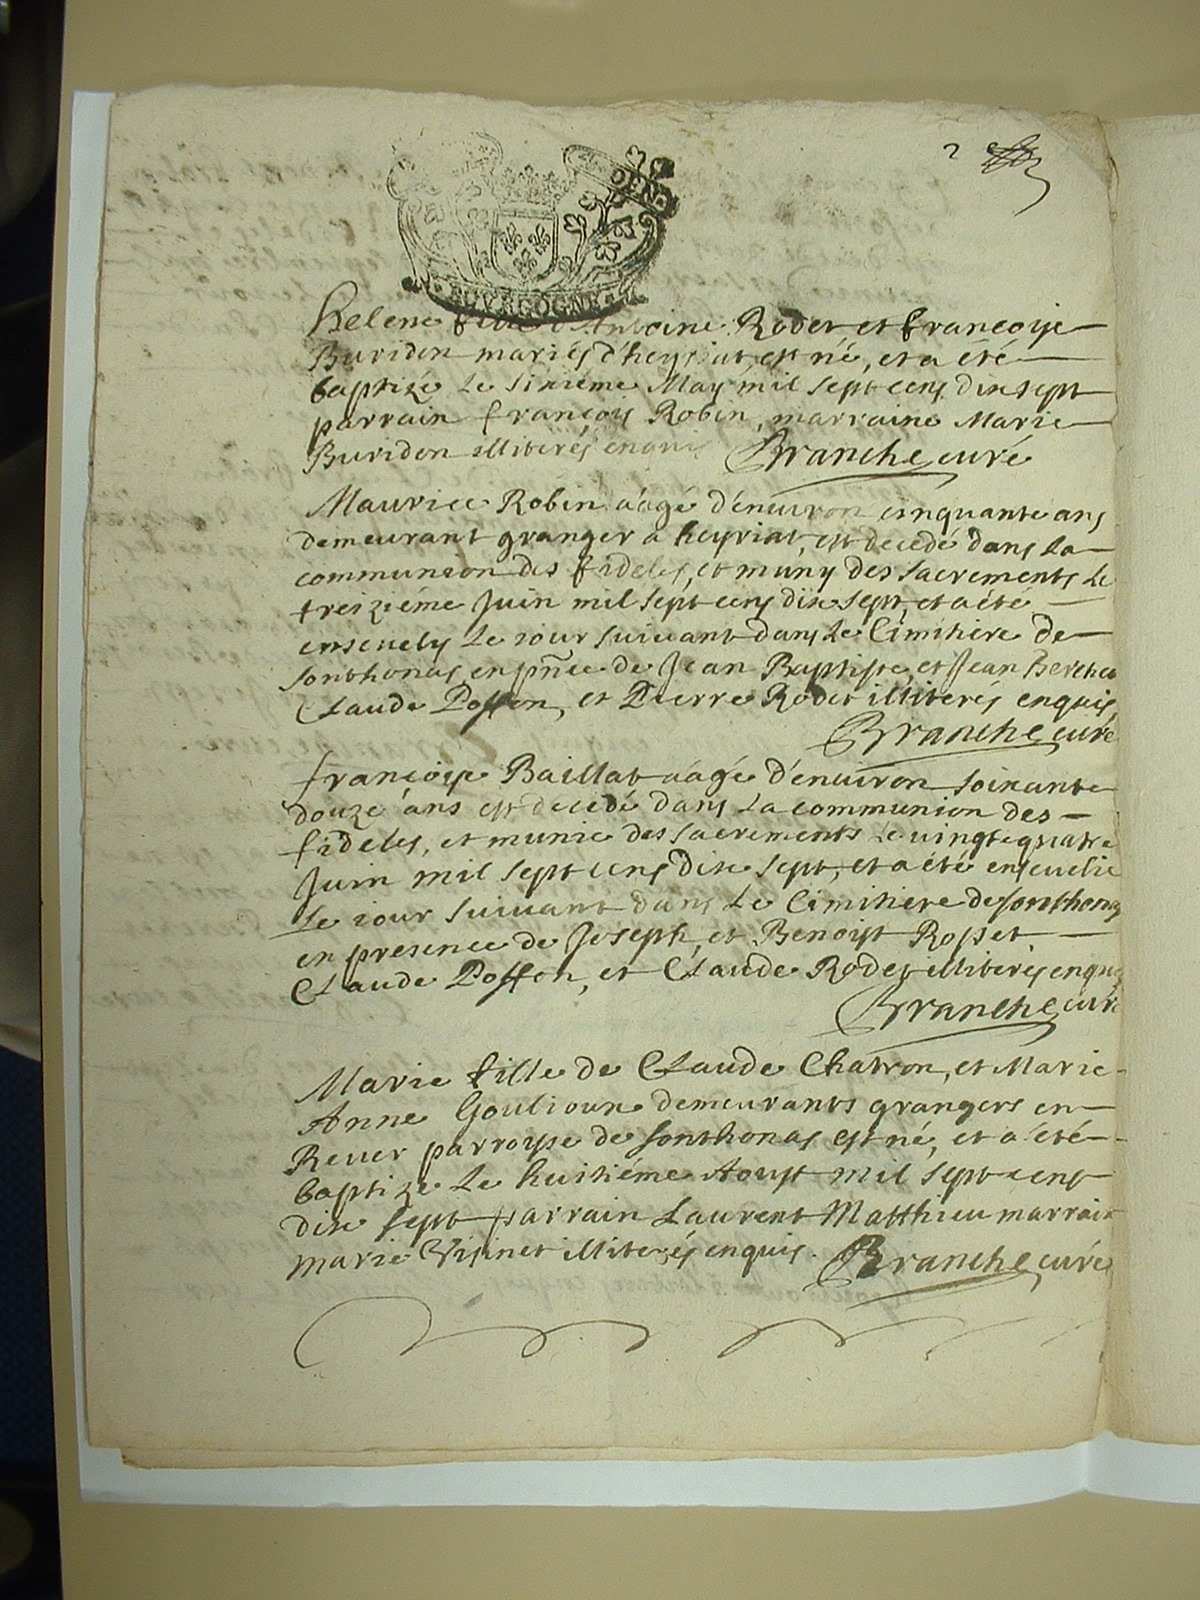 2
DEND
BOURGOGNE
helene fille d'Antoine Rodet et francoise
Buridon mariés d'heyriat est né, et a été
baptizé le sixiéme May mil sept cens dix sept
parrain françois Robin, marraine Marie
Buridon illiterés enquis Branche curé
Maurice Robin aâgé d'enuiron cinquante ans
demeurant granger a heyriat, est decedé dans la
communion des fideles, et muny des sacrements le
treiziéme Juin mil sept cens dix sept, et a été
enseuely le iour suiuant dans le Cimitiere de
sonthonas, en pñce de Jean Baptiste, et Jean
Claude Posson, et Pierre Rodet illiterés enquis
Branche curé
françoise Baillat aâgé d'enuiron soixante
douze ans est decedé dans la communion des
fideles, et munie des sacrements le vingt quatre
Juin mil sept cens dix sept, et a été enseuelie
le iour suiuant dans le Cimitiere de sonthonas
en presence de Joseph, et Benoist Rosset
Claude Posson, et Claude Rodet illiterés enquis
Branche curé
Marie fille de Claude Chatron, et Marie
Anne Goulioun demeurants grangers en
Reuer parroysse de sonthonas est né, et a été
baptizé le huitiéme Aoust mil sept cens
dix sept parrain Laurent Matthieu marraine
marie Visinet illiterés enquis. Branche curé